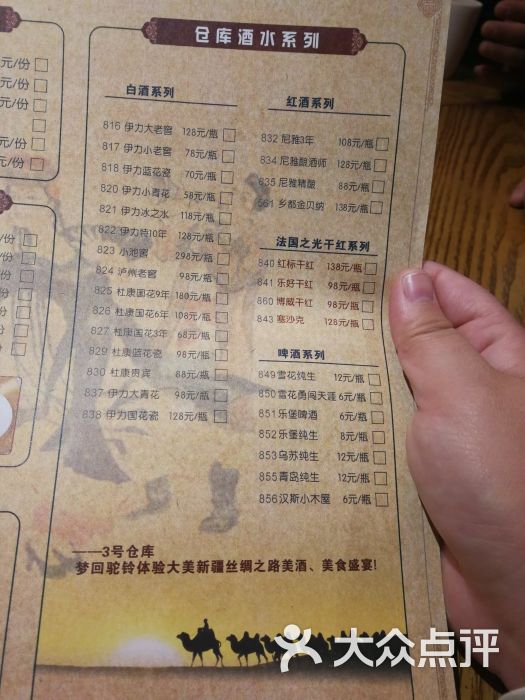 仓库酒水系列
白酒系列
816 伊力大老窖 128元/瓶
817 伊力小老窖 78元/瓶
818 伊力蓝花瓷 70元/瓶
820 伊力小青花 58元/瓶
821 伊力冰之水 118元/瓶
822 伊力特10年 128元/瓶
823 小池窖 298元/瓶
824 泸州老窖 98元/瓶
825 杜康国花9年 180元/瓶
826 杜康国花6年 108元/瓶
827 杜康国花3年 68元/瓶
829 杜康蓝花瓷 98元/瓶
830 杜康贵宾 88元/瓶
837 伊力大青花 98元/瓶
838 伊力国花瓷 128元/瓶
红酒系列
832 尼雅3年 108元/瓶
834 尼雅酿酒师 128元/瓶
835 尼雅精酿 88元/瓶
561 乡都金贝纳 138元/瓶
法国之光干红系列
840 红标干红 138元/瓶
841 乐好干红 98元/瓶
860 博威干红 98元/瓶
843 塞沙克 128元/瓶
啤酒系列
849 雪花纯生 12元/瓶
850 雪花勇闯天涯 6元/瓶
851 乐堡啤酒 6元/瓶
852 乐堡纯生 8元/瓶
853 乌苏纯生 12元/瓶
855 青岛纯生 12元/瓶
856 汉斯小木屋 6元/瓶
——3号仓库
梦回驼铃体验大美新疆丝绸之路美酒、美食盛宴!
元/份
元/份
元/份
元/份
元/份
/份
/份
/份
/份
/份
/份
大众点评